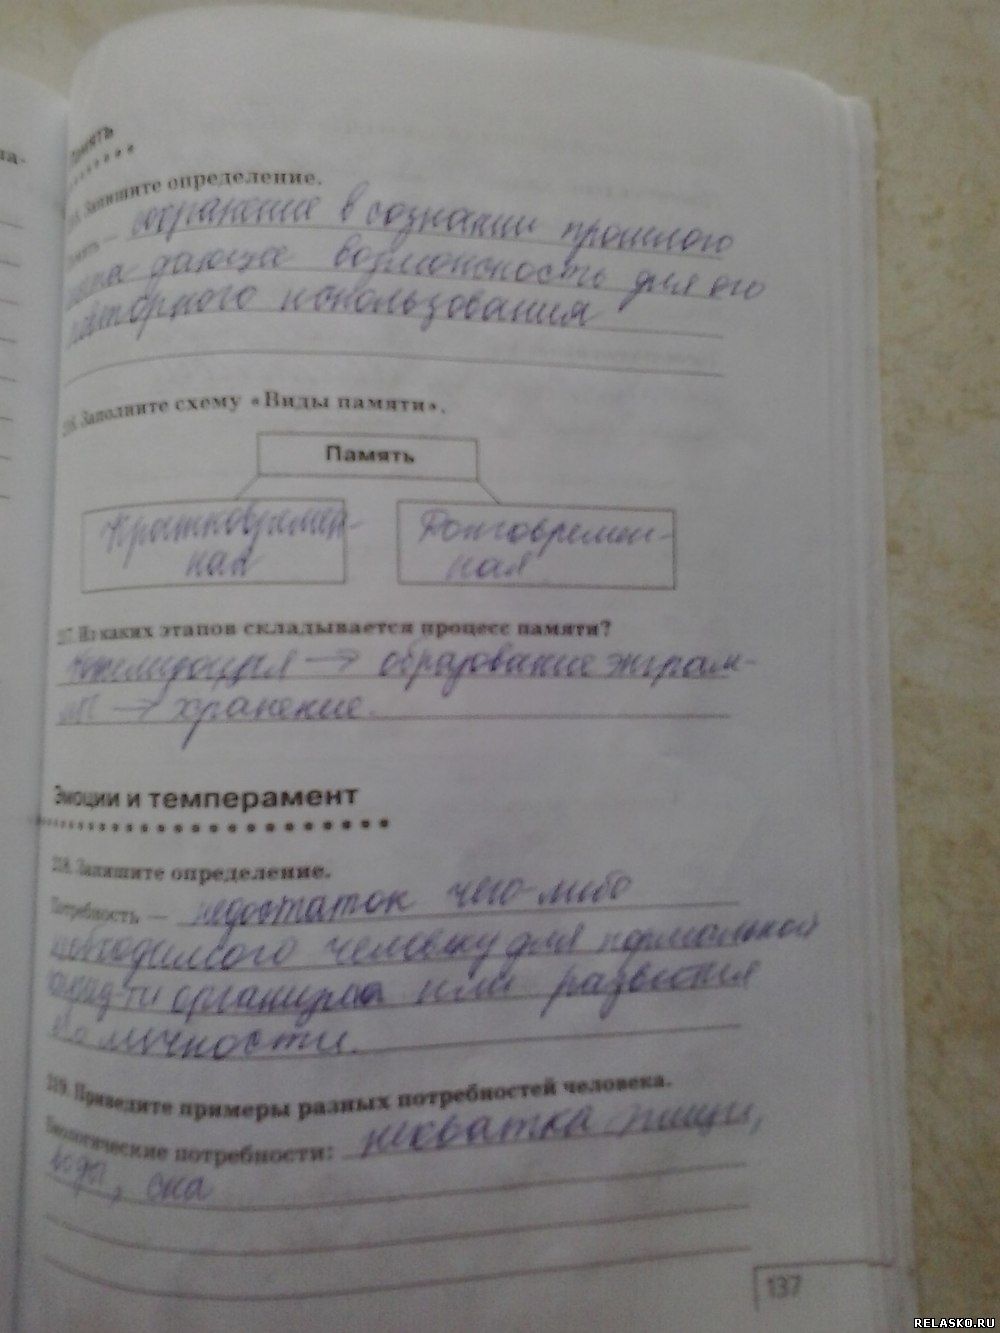 Память
Запишите определение.
сохранение в сознании прошлого
дающее возможность для его
повторного использования
Заполните схему «Виды памяти».
Память
Кратковремен-
ная
Долговремен-
ная
Из каких этапов складывается процесс памяти?
→ образование энграм-
мы → хранение.
Эмоции и темперамент
218. Запишите определение.
Потребность — недостаток чего-либо
необходимого человеку для нормальной
или развития
личности.
219. Приведите примеры разных потребностей человека.
Биологические потребности: нехватка пищи,
воды, сна
137
RELASKO.RU